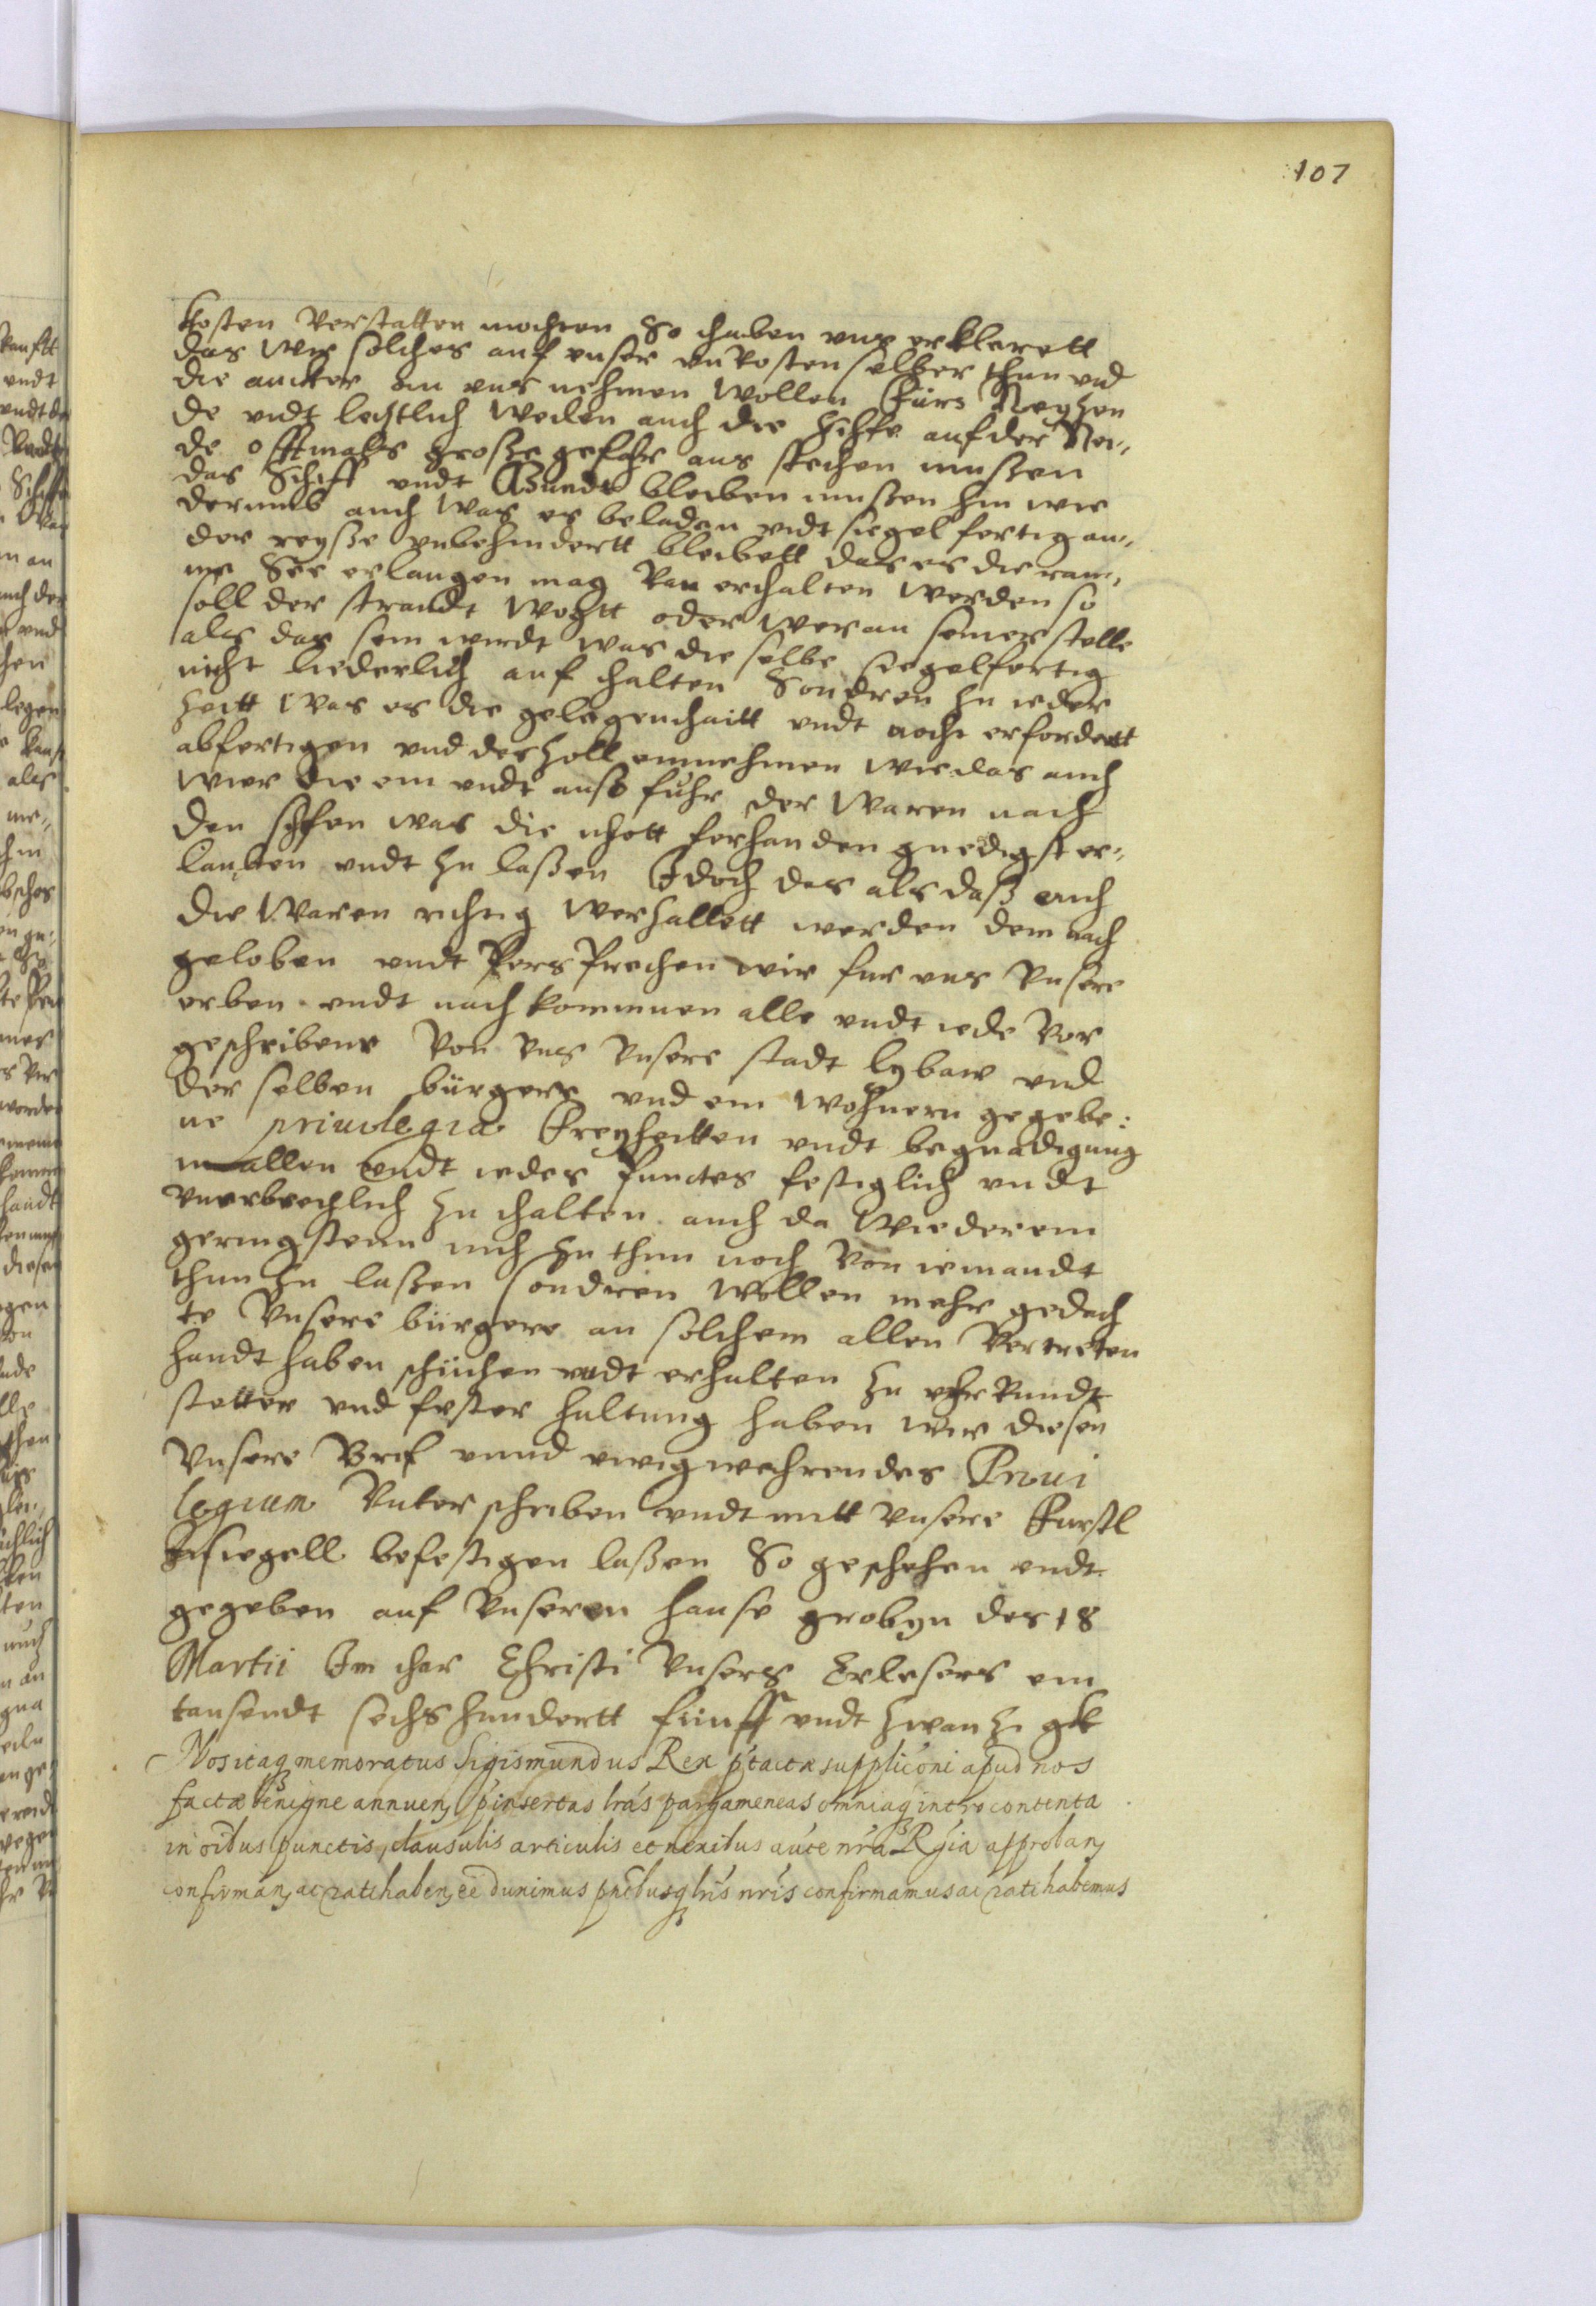 107
kosten verstatten mochten So haben uns erklerett
das wir solches auf unser unkosten selber thun und
die ancker an uns nehmen wollen Fürs
de undt lechtlich weilen auch die schife auf der Rei„
de offtmals grosse gefahr aus stechen mussen
das Schiff undt bleiben mussen hin wie
derumb auch was es beladen undt siegel fertig an„
der reysse unbehindertt bleibett das es die raum„
me See erlangen mag kan erhalten werden so
soll der strandt Vochtt oder wer an seiner stelle
als das sein wirdt was die selbe siegelfertig
nicht liederlich auf halten Sondren zu ieder
zeitt was es die gelegenhaitt undt nohtt erfordertt
abfertigen und der zoll einnehmen wie das auch
wier die ein undt auss fuhr der Waren nach
den schifen was die nhott forhanden gnedigst er„
laubten undt zu lassen Idoch das als dass auch
die Waren richtig werzollett werden dem nach
geloben undt Persprechen wir fur uns Unsere
erben undt nach kommnen alle undt iede Vor
geschribene Von uns Unsere stadt lybaw und
der selben bürgere und ein wohnern gegebe:
ne priuilegia Freyheitten undt begnadigung
in allen undt iedes punctes festiglich undt
unverbrechlich zu halten auch da wiederein
geringstenn nich zu thun noch von iemandt
thun zu lassen sondren wollen mehr gedach
te Unsere bürgere an solchem allen Vertreten
handt haben schützen undt erhalten zu uhrkundt
stetter und fester haltung haben wir diesen
Unsere Brif unnd ewigwehrendes Priui
legium Unterschriben undt mitt unsere Furstl
Insiegell befestigen lassen So geschehen undt
gegeben auf Unseren hause grobyn des 18
Martii Im ihar Christi Unsers Erlesers ein
tausendt sechshundertt fünff undt zwanzigk
Nos itaq memoratus Sigismundus Rex p̃tactæ suppliconi apud nos
factæ benigne annuen, p̃insertas lrás pargameneas omniaq intro contenta
in oibus punctis, clausulis articulis et nexibus aúte nrá Rgia approban,
confirman, ac ratihaben, eê dunimus pntibusq lrís nrís confirmamus ac ratihabemus